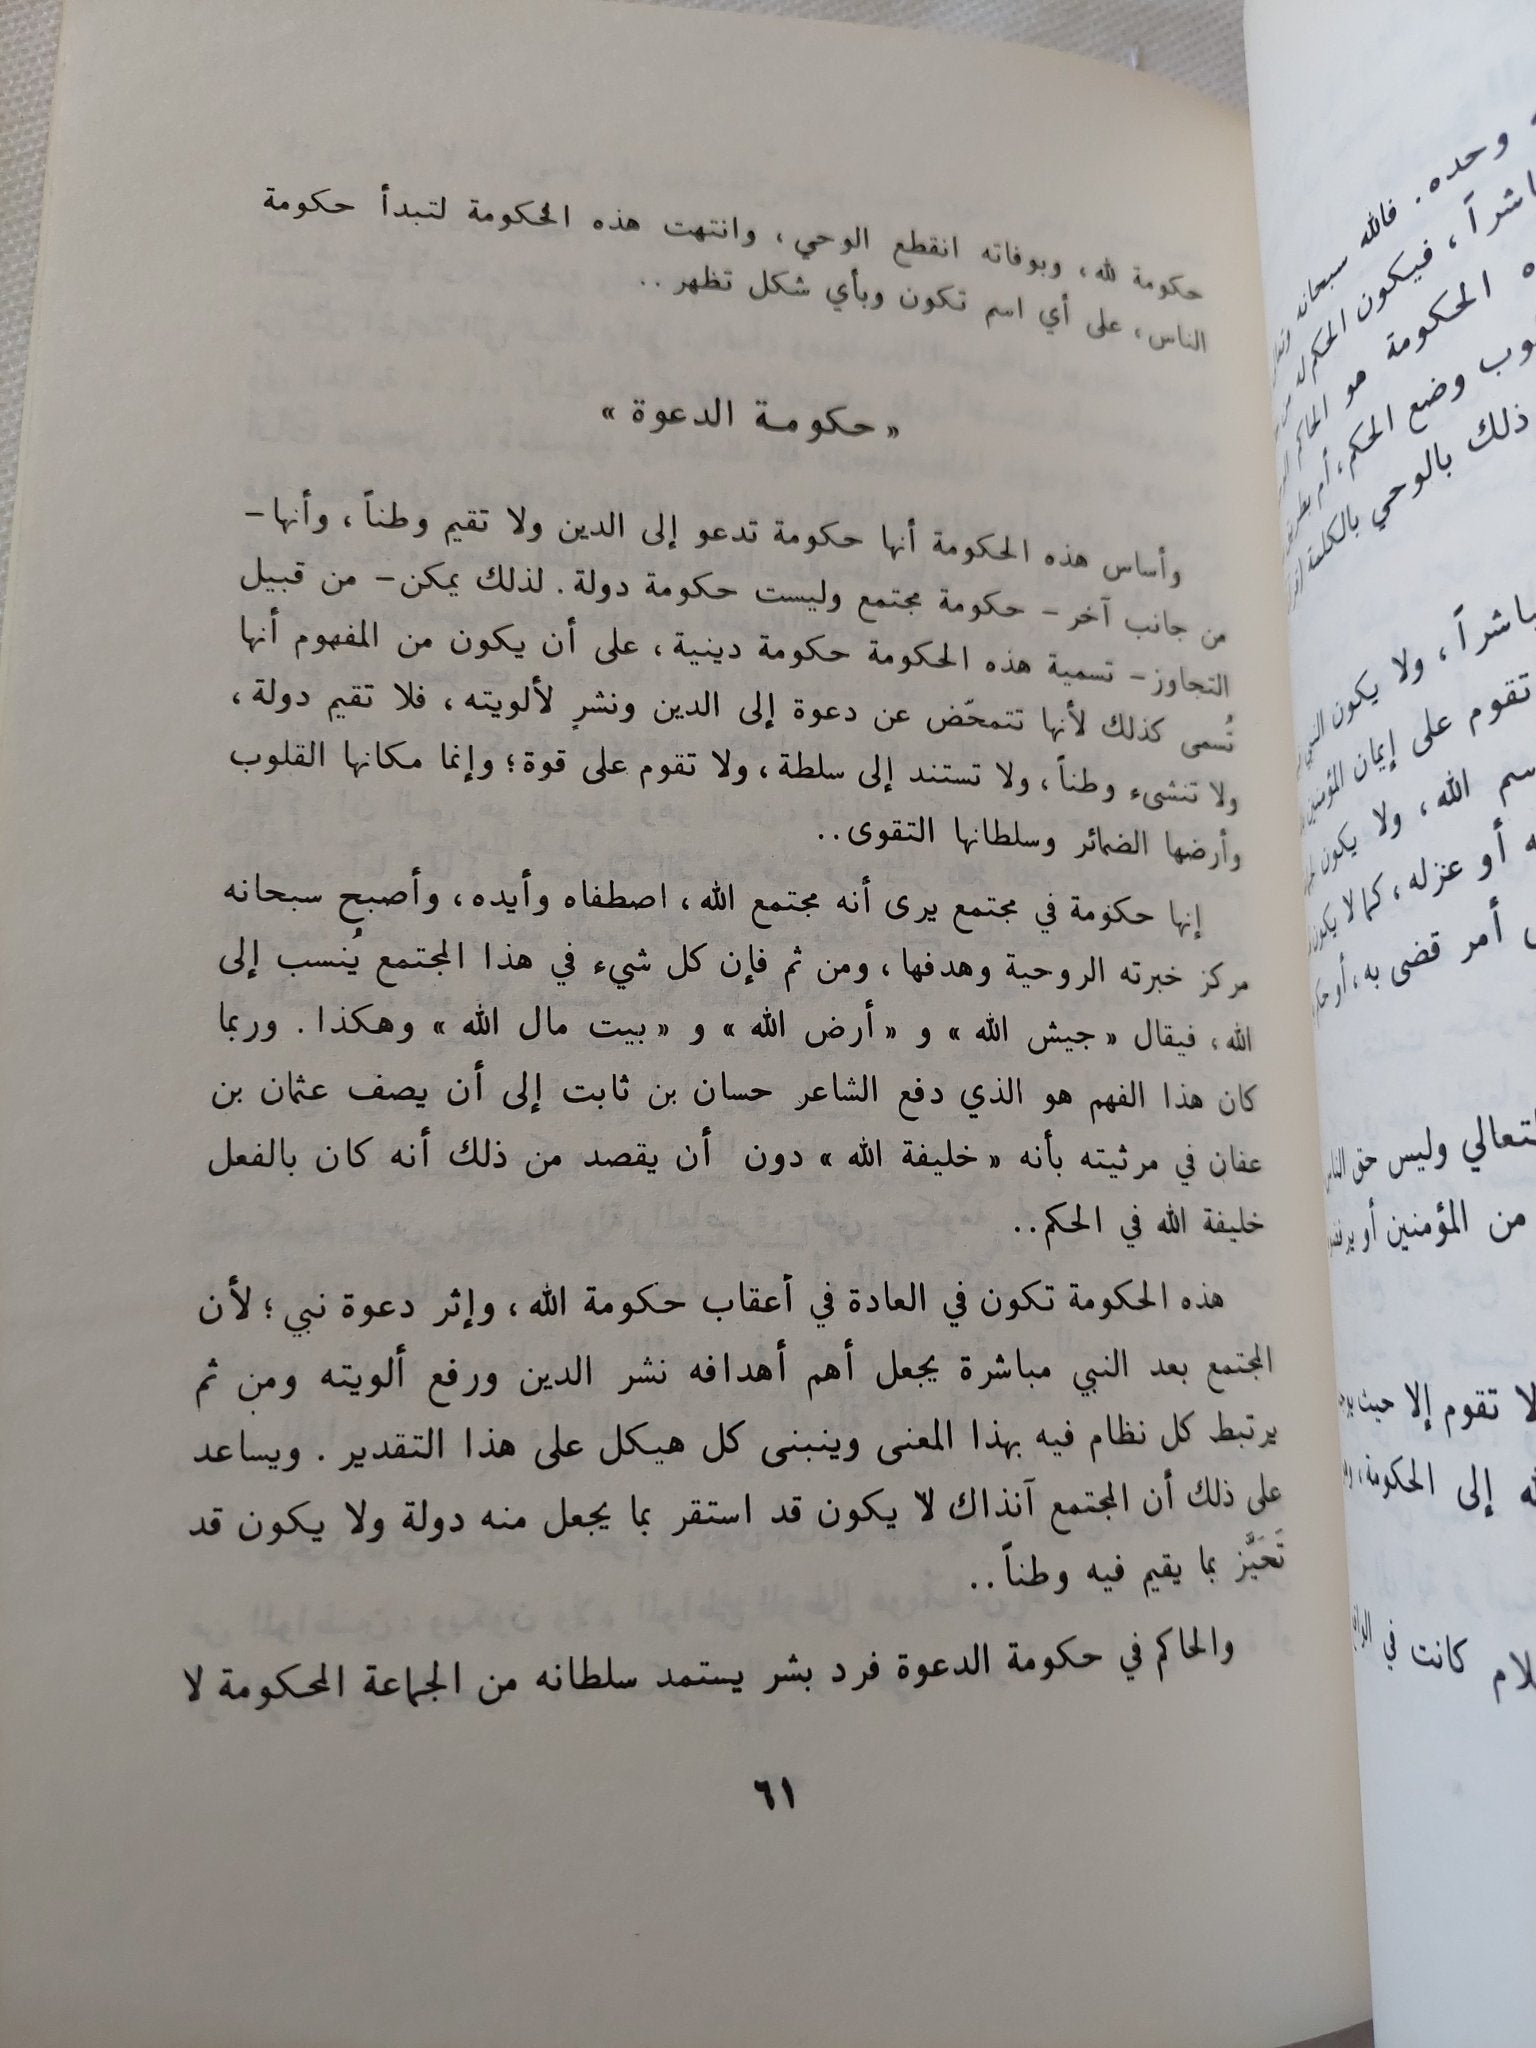 حكومة لله، وبوفاته انقطع الوحي، وانتهت هذه الحكومة لتبدأ حكومة
الناس، على أي اسم تكون وبأي شكل تظهر..
« حكومة الدعوة »
وأساس هذه الحكومة أنها حكومة تدعو إلى الدين ولا تقيم وطناً، وأنها -
من جانب آخر - حكومة مجتمع وليست حكومة دولة. لذلك يمكن - من قبيل
التجاوز - تسمية هذه الحكومة حكومة دينية، على أن يكون من المفهوم أنها
تُسمى كذلك لأنها تتمحّض عن دعوة إلى الدين ونشرٍ لألويته، فلا تقيم دولة،
ولا تنشىء وطناً، ولا تستند إلى سلطة، ولا تقوم على قوة؛ وإنما مكانها القلوب
وأرضها الضمائر وسلطانها التقوى..
إنها حكومة في مجتمع يرى أنه مجتمع الله، اصطفاه وأيده، وأصبح سبحانه
مركز خبرته الروحية وهدفها، ومن ثم فإن كل شيء في هذا المجتمع يُنسب إلى
الله، فيقال « جيش الله » و « أرض الله » و « بيت مال الله » وهكذا. وربما
كان هذا الفهم هو الذي دفع الشاعر حسان بن ثابت إلى أن يصف عثمان بن
عفان في مرثيته بأنه « خليفة الله » دون أن يقصد من ذلك أنه كان بالفعل
خليفة الله في الحكم..
هذه الحكومة تكون في العادة في أعقاب حكومة الله، وإثر دعوة نبي؛ لأن
المجتمع بعد النبي مباشرة يجعل أهم أهدافه نشر الدين ورفع ألويته ومن ثم
يرتبط كل نظام فيه بهذا المعنى وينبنى كل هيكل على هذا التقدير. ويساعد
على ذلك أن المجتمع آنذاك لا يكون قد استقر بما يجعل منه دولة ولا يكون قد
تَحَيَّز بما يقيم فيه وطناً..
والحاكم في حكومة الدعوة فرد بشر يستمد سلطانه من الجماعة المحكومة لا
٦١
وحده. فالله سبحانه
فيكون الحكم
الحكومة هو الحاكم
وضع الحكم، أم
ذلك بالوحي بالكلمة
ولا يكون النبي
تقوم على إيمان المؤمنين
الله، ولا يكون
أو عزله، كما لا يكون
أمر قضى به، أو
وليس حق الناس
من المؤمنين أو
لا تقوم إلا حيث
إلى الحكومة،
كانت في